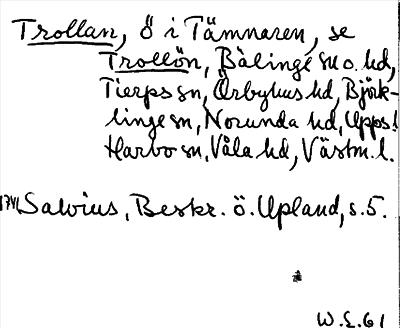 Trollan, Ö i Tämnaren, se
Trollön, Bälinge sn o. hd,
Tierps sn, Örbyhus hd, Björk-
linge sn, Norunda hd, Upps. l.
Harbo sn, Våla hd, Västm. l.
1741 Salvius, Beskr. ö. Upland, s. 5.
W.E. 61